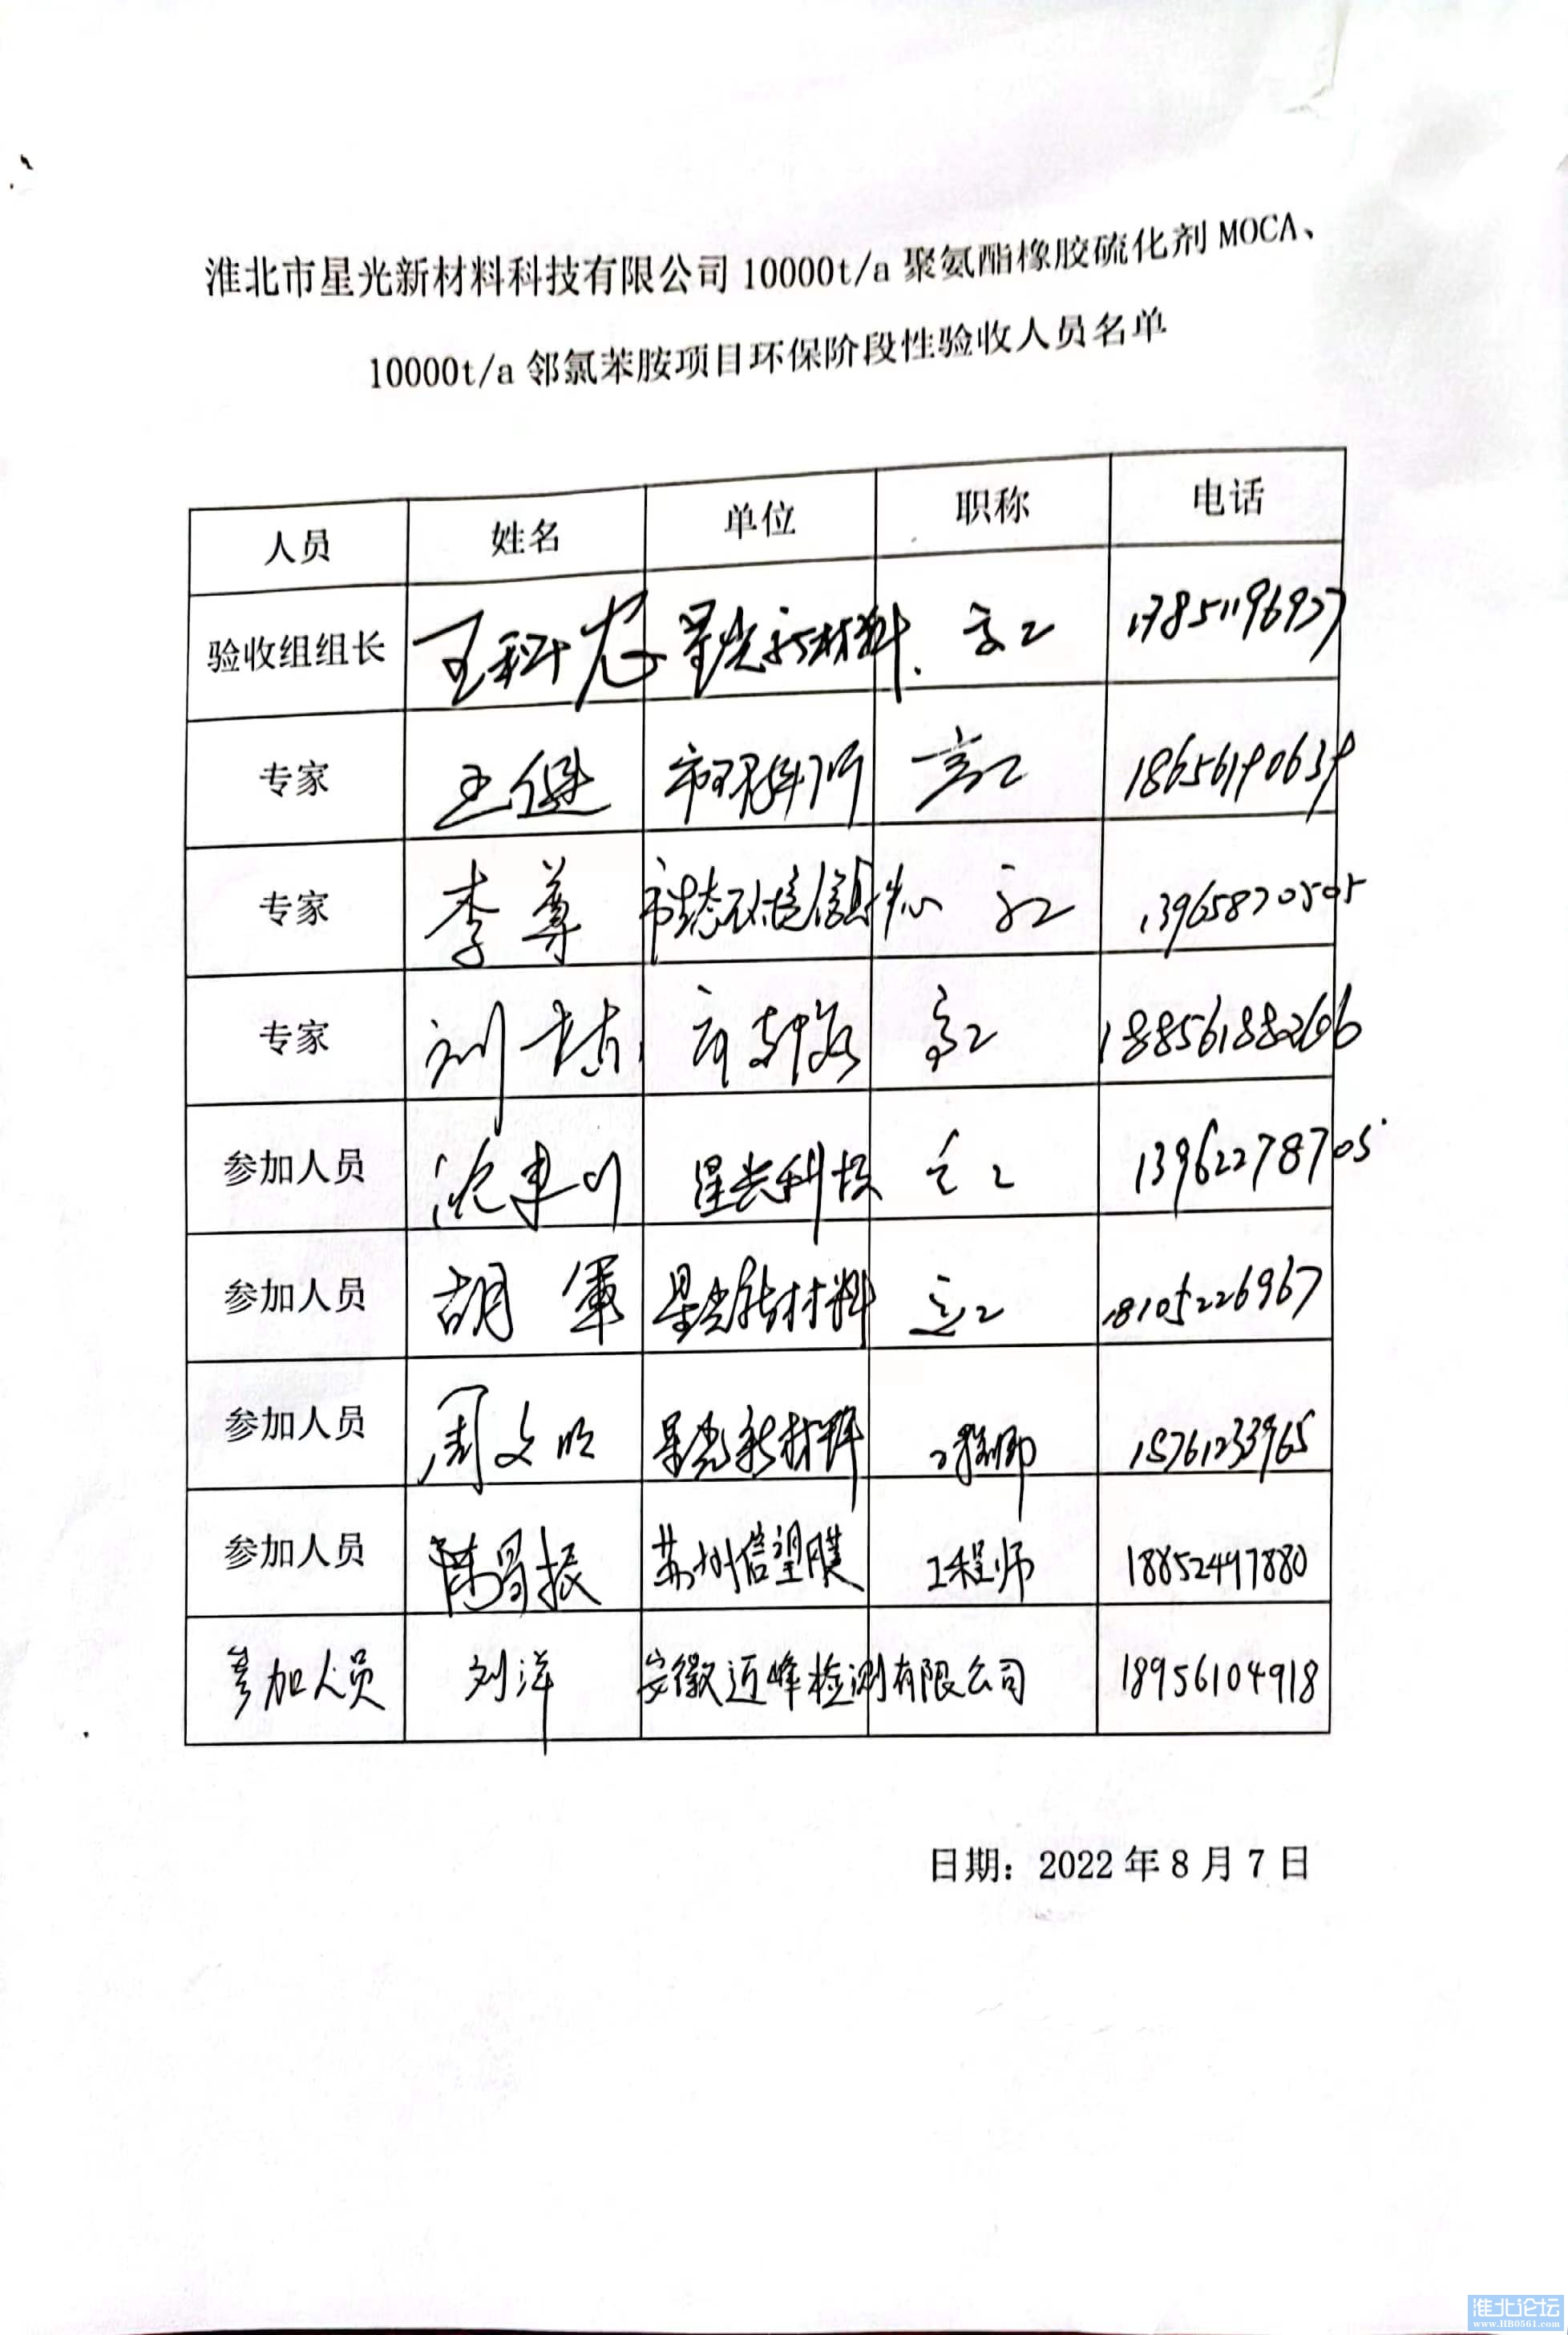 淮北市星光新材料科技有限公司 10000t/a 聚氨酯橡胶硫化剂 MOCA、
10000t/a 邻氯苯胺项目环保阶段性验收人员名单
人员 姓名 单位 职称 电话
验收组组长 王科 星光新材料 高工 137851196937
专家 王继 高工 18656190639
专家 李尊 市生态环境信息中心 高工 13965870505
专家 刘 高工 18856188266
参加人员 沈 星光科技 13962278705
参加人员 胡軍 星光新材料 18105226967
参加人员 周文明 星光新材料 工程师 15761233965
参加人员 陈 振 苏州信望膜 工程师 18852497880
参加人员 刘洋 安徽迈峰检测有限公司 18956104918
日期：2022 年 8 月 7 日
淮北论坛
www.HB0561.com